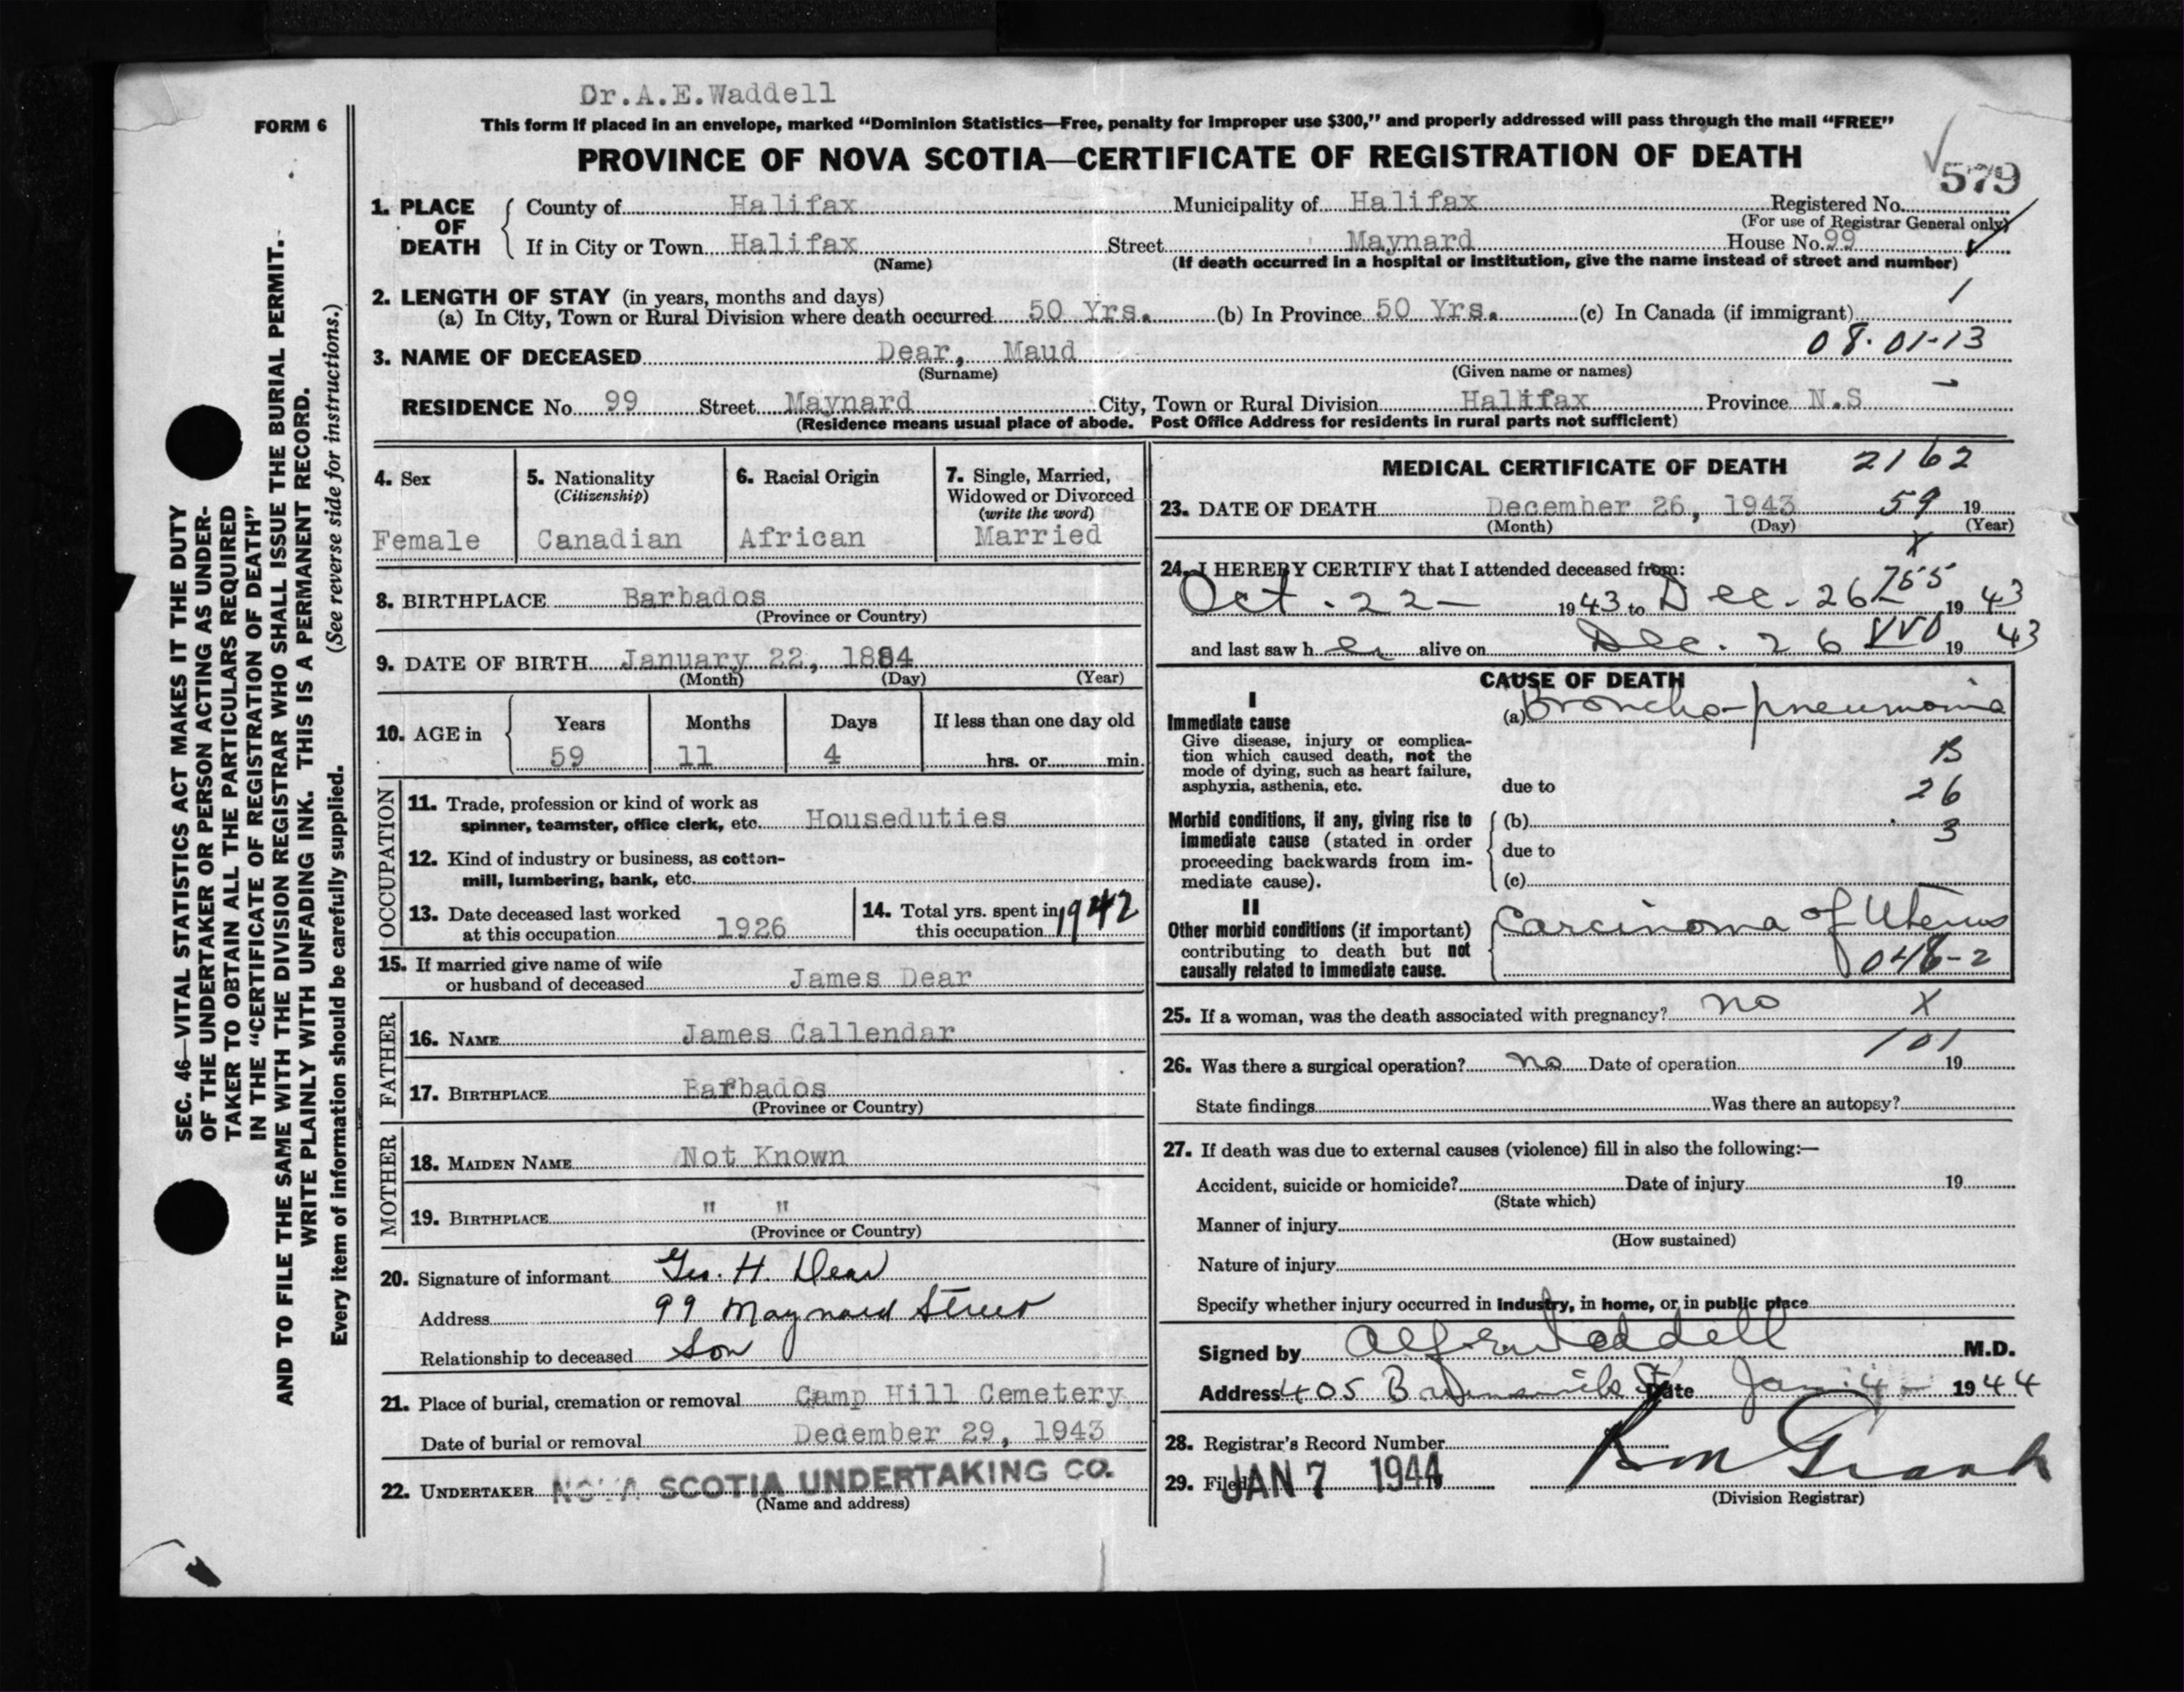 Dr.A.E.Waddell
FORM 6
This form if placed in an envelope, marked “Dominion Statistics—Free, penalty for improper use $300,” and properly addressed will pass through the mail “FREE”
PROVINCE OF NOVA SCOTIA—CERTIFICATE OF REGISTRATION OF DEATH
579
1. PLACE OF DEATH
County of Halifax Municipality of Halifax Registered No.
(For use of Registrar General only)
If in City or Town Halifax Street Maynard House No. 99
(Name) (If death occurred in a hospital or institution, give the name instead of street and number)
2. LENGTH OF STAY (in years, months and days)
(a) In City, Town or Rural Division where death occurred 50 Yrs. (b) In Province 50 Yrs. (c) In Canada (if immigrant) 1
3. NAME OF DECEASED Dear, Maud 08.01-13
(Surname) (Given name or names)
RESIDENCE No. 99 Street Maynard City, Town or Rural Division Halifax Province N.S
(Residence means usual place of abode. Post Office Address for residents in rural parts not sufficient)
4. Sex
Female
5. Nationality
(Citizenship)
Canadian
6. Racial Origin
African
7. Single, Married,
Widowed or Divorced
(write the word)
Married
8. BIRTHPLACE Barbados
(Province or Country)
9. DATE OF BIRTH January 22, 1884
(Month) (Day) (Year)
10. AGE in
Years Months Days If less than one day old
59 11 4 hrs. or min.
OCCUPATION
11. Trade, profession or kind of work as
spinner, teamster, office clerk, etc. Houseduties
12. Kind of industry or business, as cotton-
mill, lumbering, bank, etc.
13. Date deceased last worked
at this occupation 1926
14. Total yrs. spent in
this occupation 1942
15. If married give name of wife
or husband of deceased James Dear
FATHER
16. NAME James Callendar
17. BIRTHPLACE Barbados
(Province or Country)
MOTHER
18. MAIDEN NAME Not Known
19. BIRTHPLACE " "
(Province or Country)
20. Signature of informant Geo. H. Dear
Address 99 Maynard Street
Relationship to deceased Son
21. Place of burial, cremation or removal Camp Hill Cemetery
Date of burial or removal December 29, 1943
22. UNDERTAKER NOVA SCOTIA UNDERTAKING CO.
(Name and address)
MEDICAL CERTIFICATE OF DEATH 2162
23. DATE OF DEATH December 26, 1943 59 19
(Month) (Day) (Year)
X
24. I HEREBY CERTIFY that I attended deceased from:
Oct. 22— 1943 to Dec. 26 1943
and last saw her alive on Dec. 26 1943
CAUSE OF DEATH
I
Immediate cause
Give disease, injury or complica-
tion which caused death, not the
mode of dying, such as heart failure,
asphyxia, asthenia, etc.
(a) Broncho-pneumonia
B
due to
26
Morbid conditions, if any, giving rise to
immediate cause (stated in order
proceeding backwards from im-
mediate cause).
(b)
3
due to
(c)
II
Other morbid conditions (if important)
contributing to death but not
causally related to immediate cause.
Carcinoma of Uterus
048-2
25. If a woman, was the death associated with pregnancy? no X
101
26. Was there a surgical operation? no Date of operation 19
State findings Was there an autopsy?
27. If death was due to external causes (violence) fill in also the following:—
Accident, suicide or homicide? Date of injury 19
(State which)
Manner of injury
(How sustained)
Nature of injury
Specify whether injury occurred in industry, in home, or in public place
Signed by Alf. E. Waddell M.D.
Address 405 Brunswick St Date Jan. 4— 1944
28. Registrar's Record Number
29. Filed JAN 7 1944
(Division Registrar)
SEC. 46—VITAL STATISTICS ACT MAKES IT THE DUTY
OF THE UNDERTAKER OR PERSON ACTING AS UNDER-
TAKER TO OBTAIN ALL THE PARTICULARS REQUIRED
IN THE “CERTIFICATE OF REGISTRATION OF DEATH”
AND TO FILE THE SAME WITH THE DIVISION REGISTRAR WHO SHALL ISSUE THE BURIAL PERMIT.
WRITE PLAINLY WITH UNFADING INK. THIS IS A PERMANENT RECORD.
Every item of information should be carefully supplied. (See reverse side for instructions.)